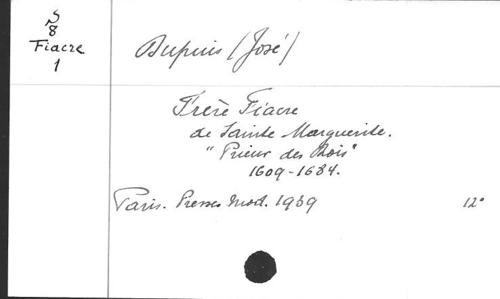 S
8
Fiacre
1
Dupuis (José)
Frère Fiacre
de Sainte Marguerite.
"Prieur des Bois"
1609-1684.
Paris. Presses mod. 1939 12°